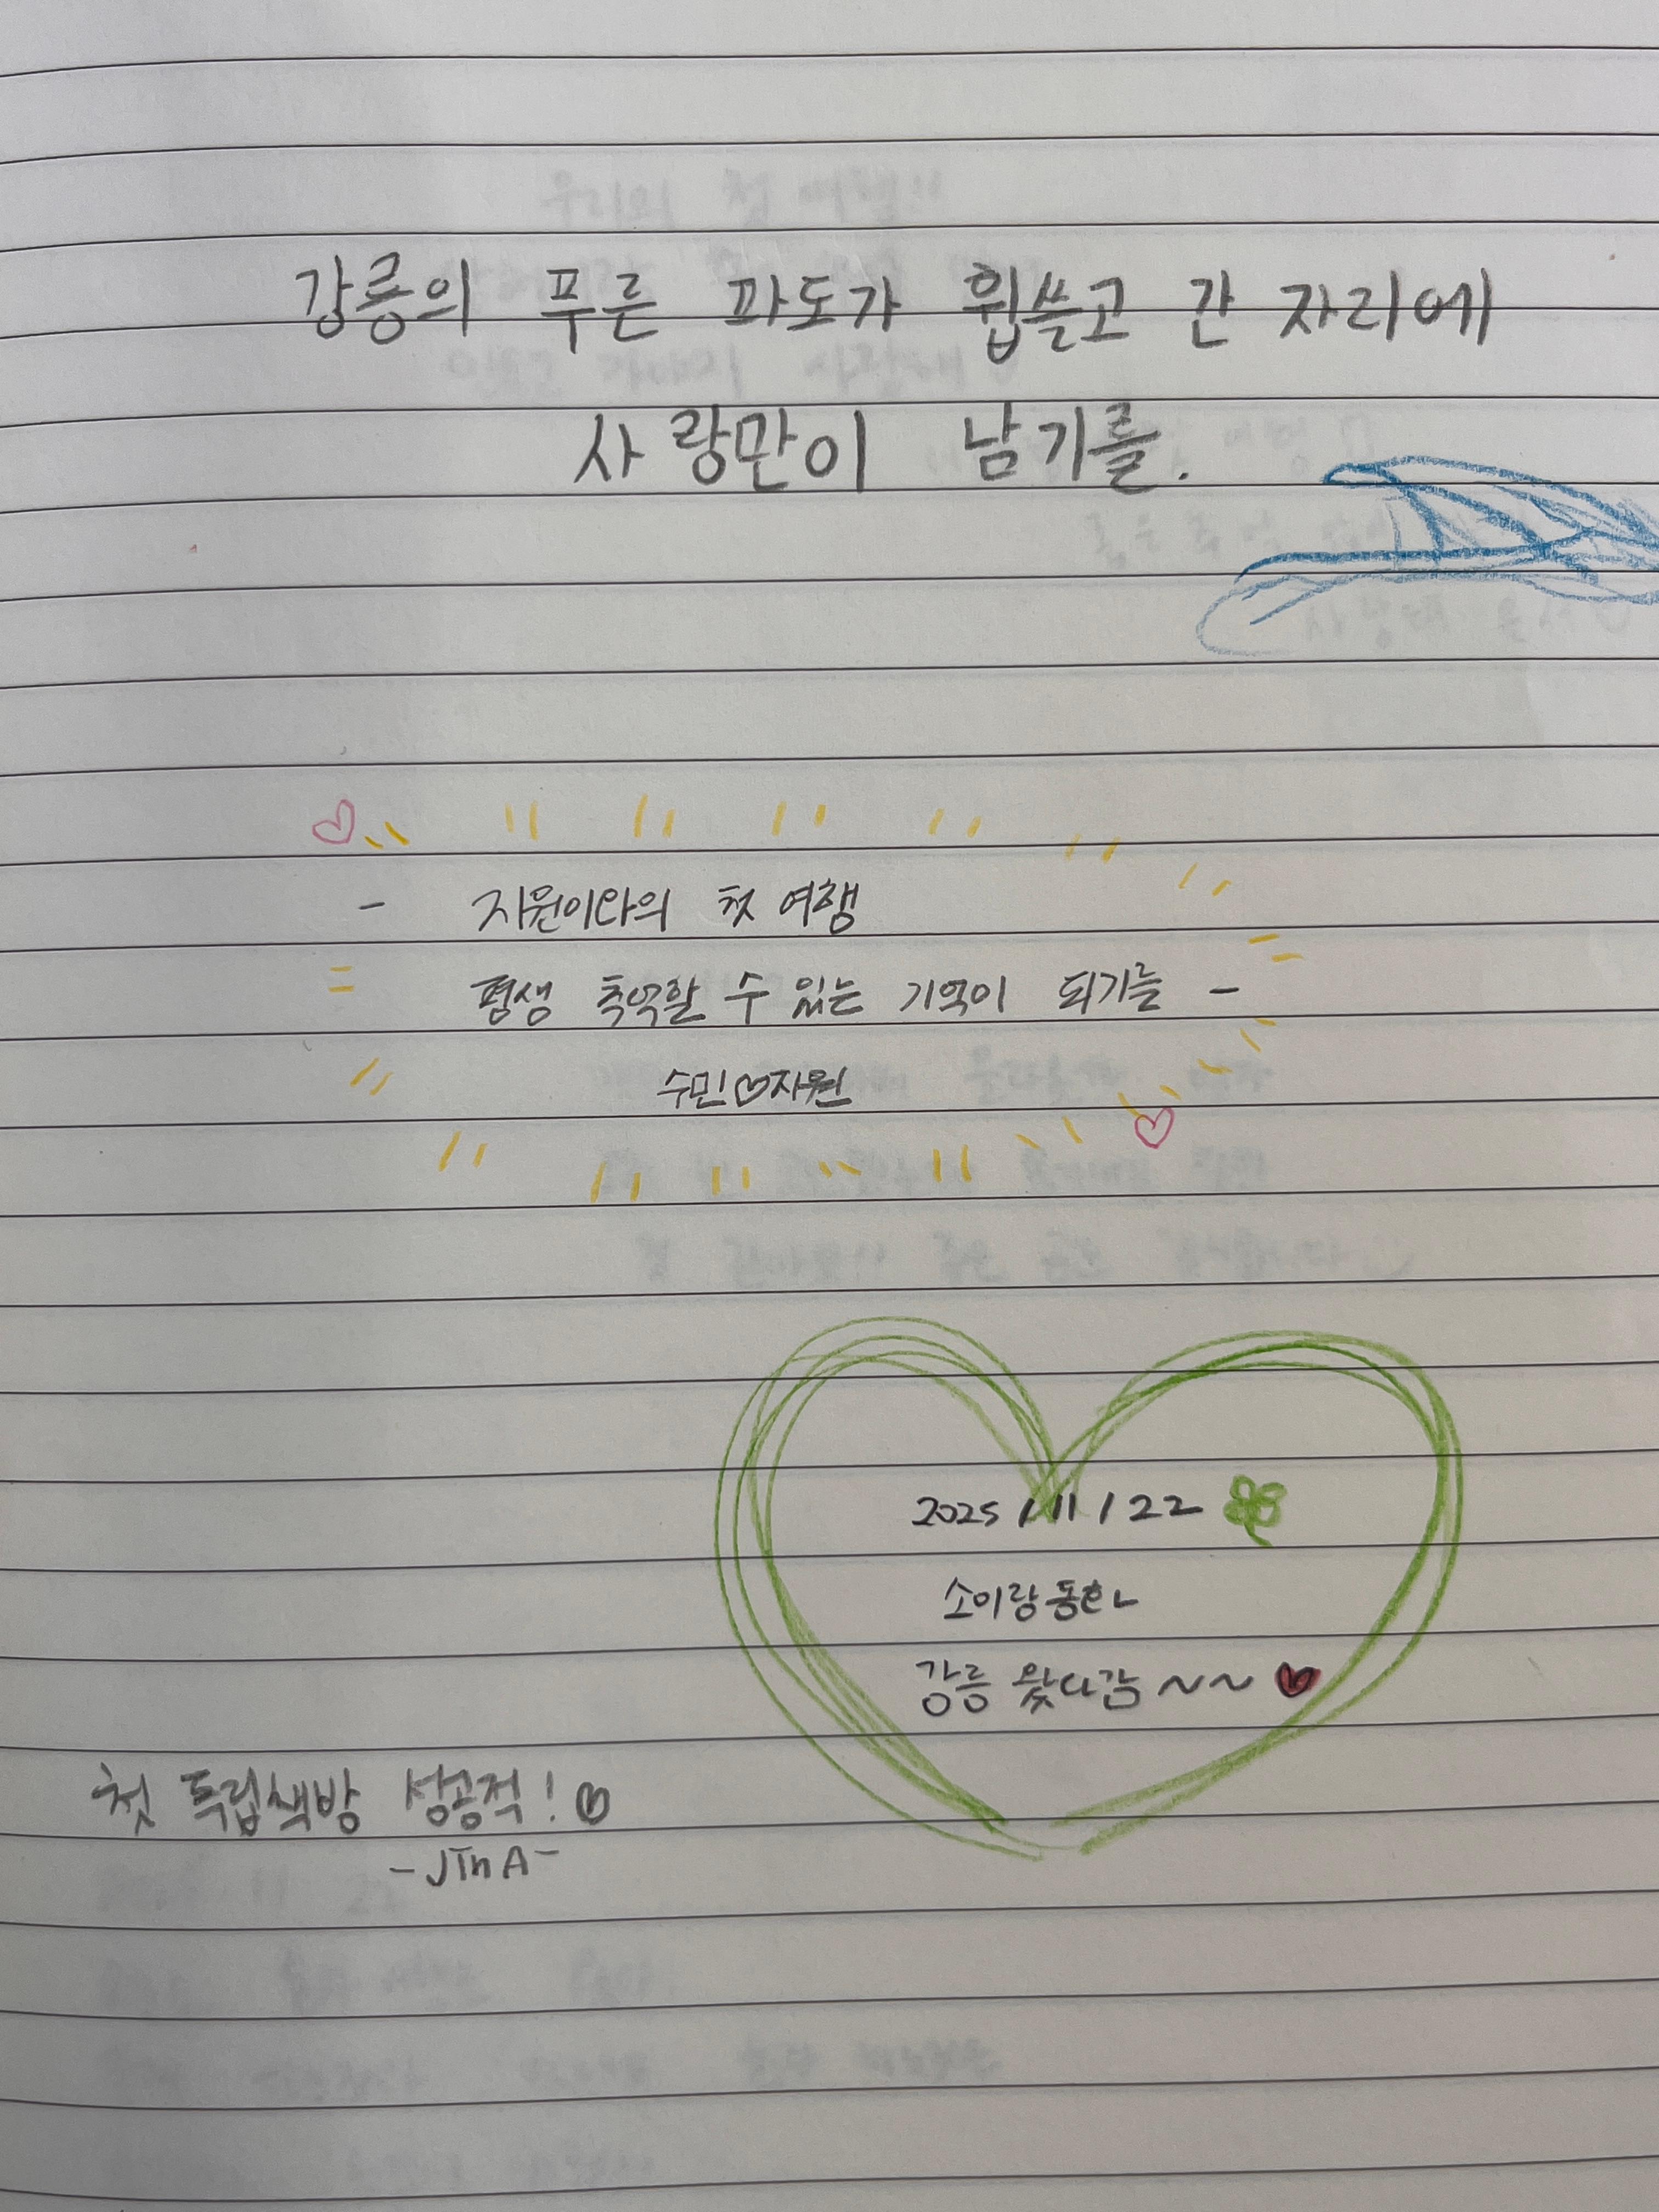 강릉의 푸른 파도가 휩쓸고 간 자리에
사랑만이 남기를.
- 지원이와의 첫 여행
평생 추억할 수 있는 기억이 되기를 -
수민♡지원
2025 / 11 / 22
소이랑 동한
강릉 왔다감 ~~ ♥
첫 독립책방 성공적! ♡
- JInA -